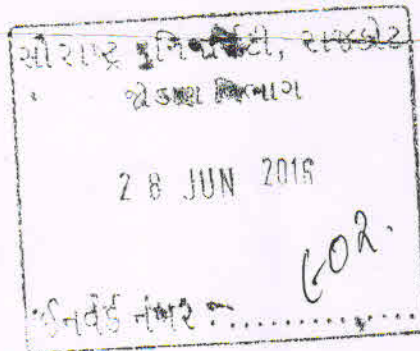 સૌરાષ્ટ્ર યુનિવર્સિટી, રાજકોટ
જોડાણ વિભાગ
28 JUN 2016
ઈનવર્ડ નંબર :